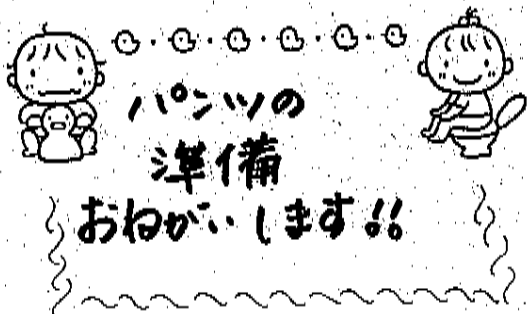 パンツの
準備
おねがいします!!